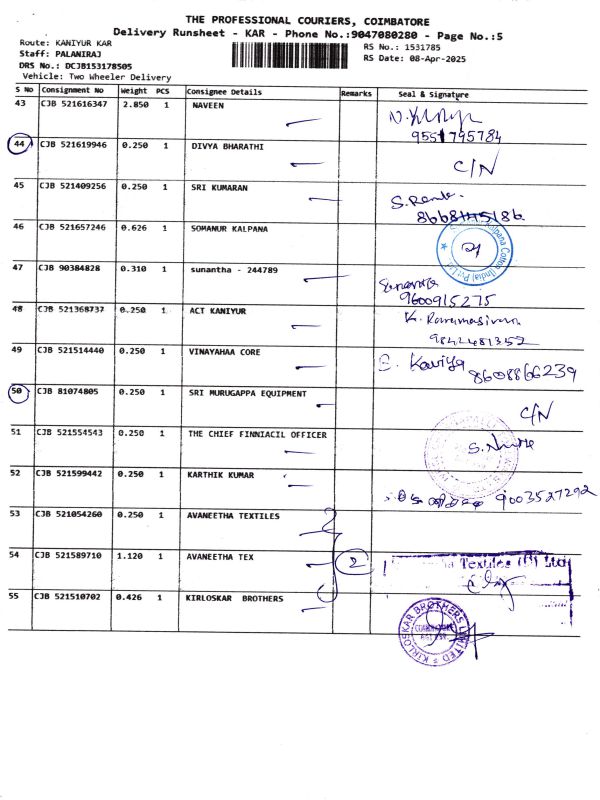 THE PROFESSIONAL COURIERS, COIMBATORE
Delivery Runsheet - KAR - Phone No.:9047080280 - Page No.:5
Route: KANIYUR KAR
RS No.: 1531785
Staff: PALANIRAJ
RS Date: 08-Apr-2025
DRS No.: DCJB153178505
Vehicle: Two Wheeler Delivery
S No Consignment No Weight PCS Consignee Details Remarks Seal & Signature
43 CJB 521616347 2.850 1 NAVEEN
9551795784
44 CJB 521619946 0.250 1 DIVYA BHARATHI C/N
45 CJB 521409256 0.250 1 SRI KUMARAN
46 CJB 521657246 0.626 1 SOMANUR KALPANA
47 CJB 90384828 0.310 1 sunantha - 244789
9600915275
48 CJB 521368737 0.250 1 ACT KANIYUR K. Paramasivam
9842481352
49 CJB 521514440 0.250 1 VINAYAHAA CORE Kaviya 8608866239
50 CJB 81074805 0.250 1 SRI MURUGAPPA EQUIPMENT C/N
51 CJB 521554543 0.250 1 THE CHIEF FINNIACIL OFFICER
52 CJB 521599442 0.250 1 KARTHIK KUMAR 9003527292
53 CJB 521054260 0.250 1 AVANEETHA TEXTILES
54 CJB 521589710 1.120 1 AVANEETHA TEX 2 Textiles (P) Ltd
55 CJB 521510702 0.426 1 KIRLOSKAR BROTHERS
KIRLOSKAR BROTHERS LIMITED